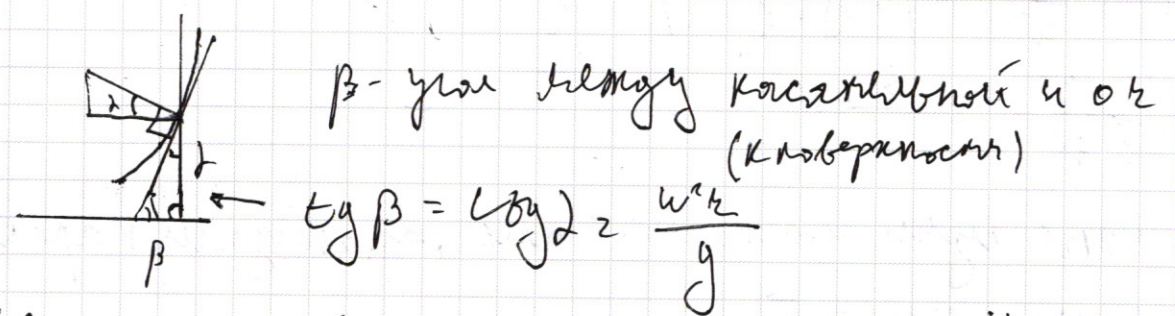 β - угол между касательной и Or
(к поверхности)
tg β = ctg α = ω²r/g
α
α
β